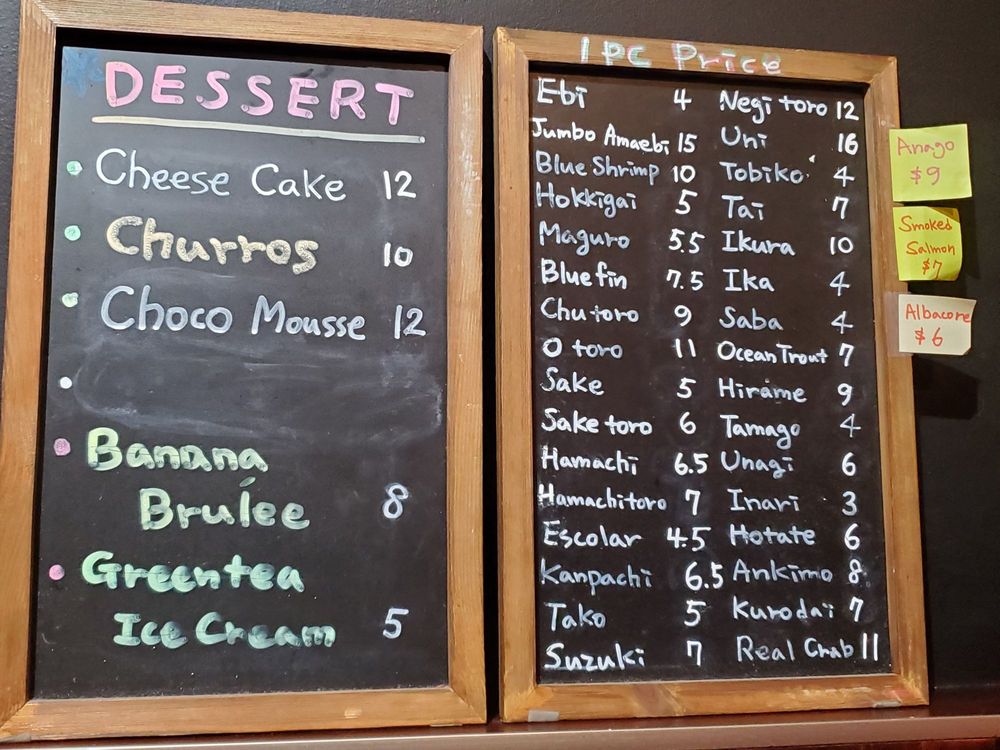 DESSERT
Cheese Cake 12
Churros 10
Choco Mousse 12
Banana
Brulée 8
Greentea
Ice Cream 5
1 PC Price
Ebi 4
Jumbo Amaebi 15
Blue Shrimp 10
Hokkigai 5
Maguro 5.5
Bluefin 7.5
Chutoro 9
O toro 11
Sake 5
Sake toro 6
Hamachi 6.5
Hamachitoro 7
Escolar 4.5
Kanpachi 6.5
Tako 5
Suzuki 7
Negi toro 12
Uni 16
Tobiko 4
Tai 7
Ikura 10
Ika 4
Saba 4
Ocean Trout 7
Hirame 9
Tamago 4
Unagi 6
Inari 3
Hotate 6
Ankimo 8
Kurodai 7
Real Crab 11
Anago
$9
Smoked
Salmon
$7
Albacore
$6